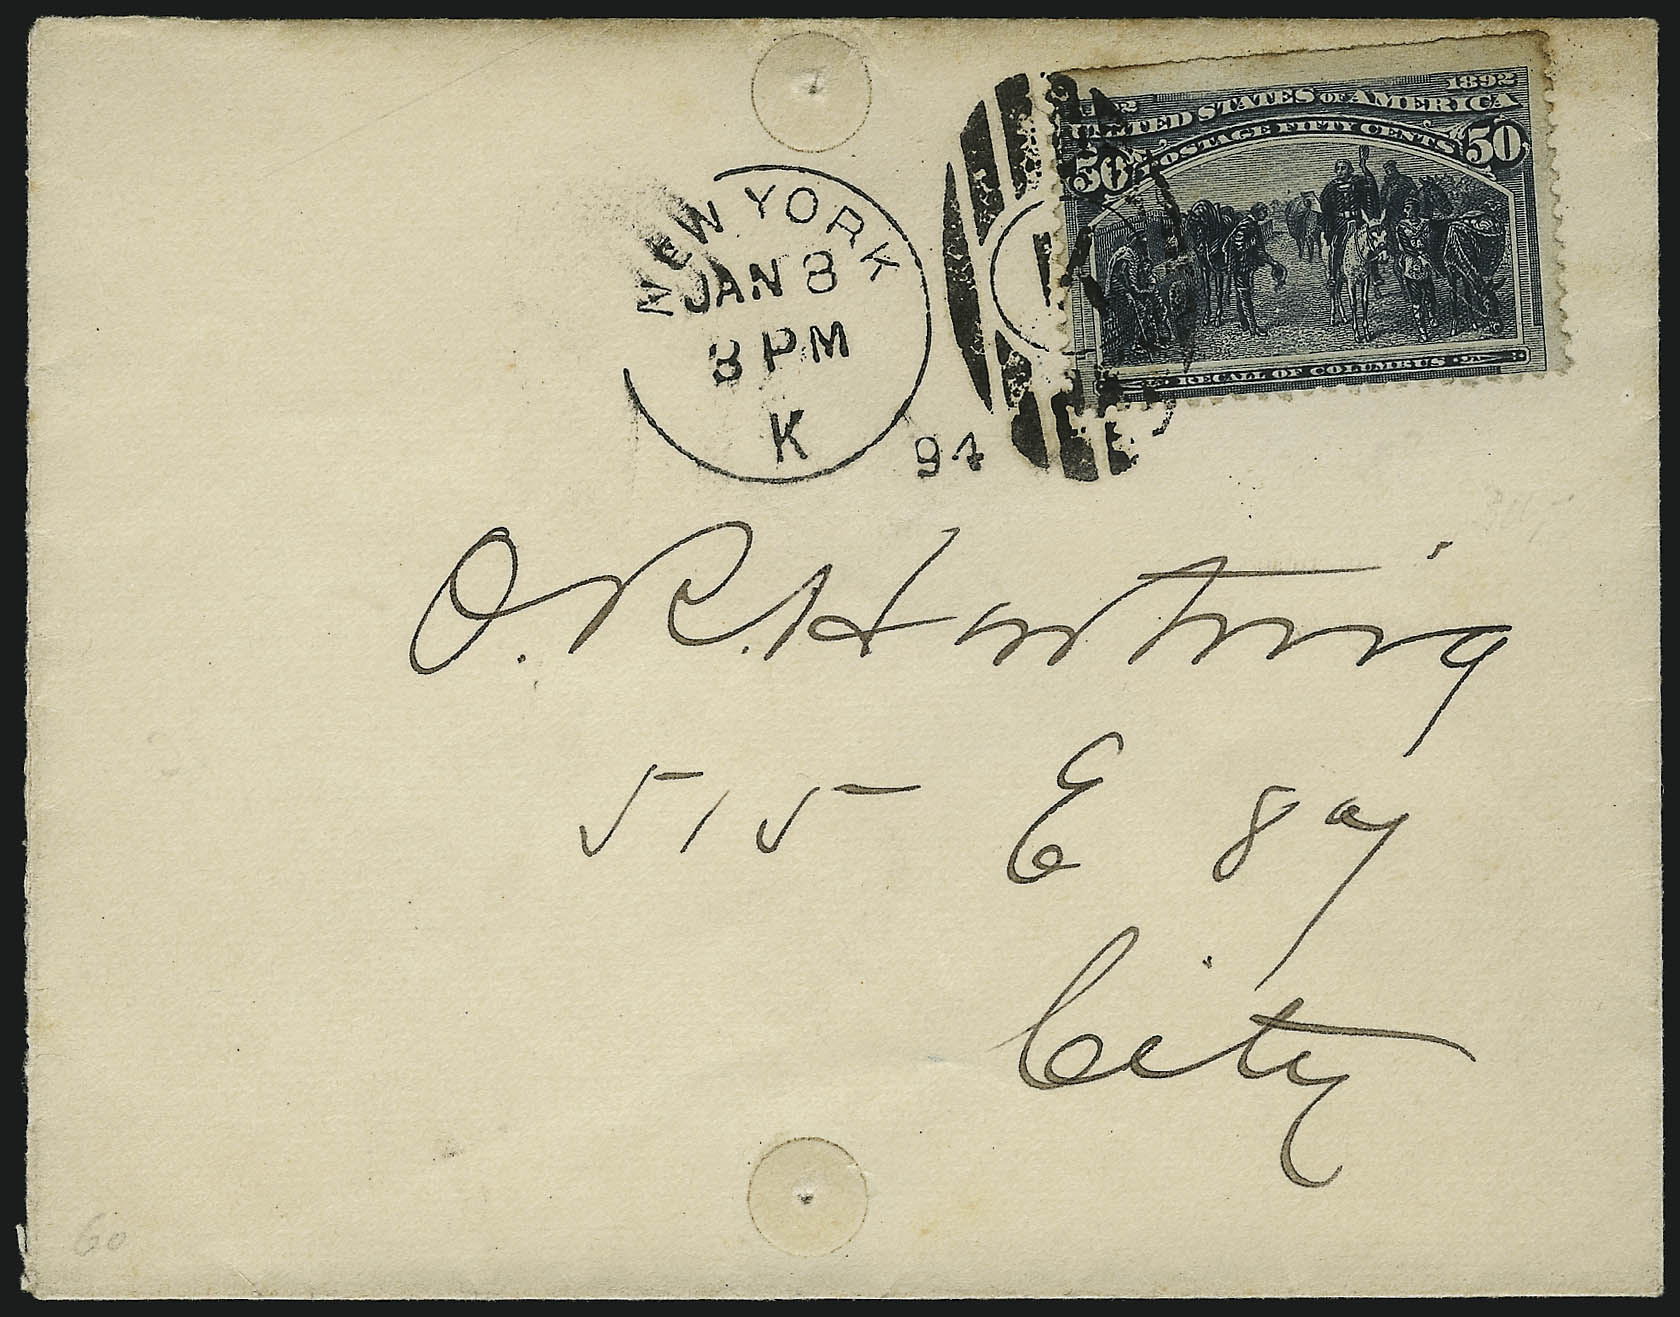 1892
UNITED STATES OF AMERICA
POSTAGE FIFTY CENTS
50 50
RECALL OF COLUMBUS
NEW YORK
JAN 8
8 PM
K
94
O. R. Hartwig
515 E 87
City
60